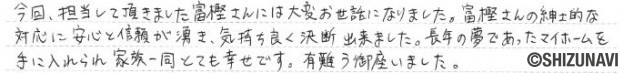 今回、担当して頂きました富樫さんには大変お世話になりました。富樫さんの紳士的な
対応に安心と信頼が湧き、気持ち良く決断出来ました。長年の夢であったマイホームを
手に入れられ家族一同とても幸せです。有難う御座いました。
©SHIZUNAVI